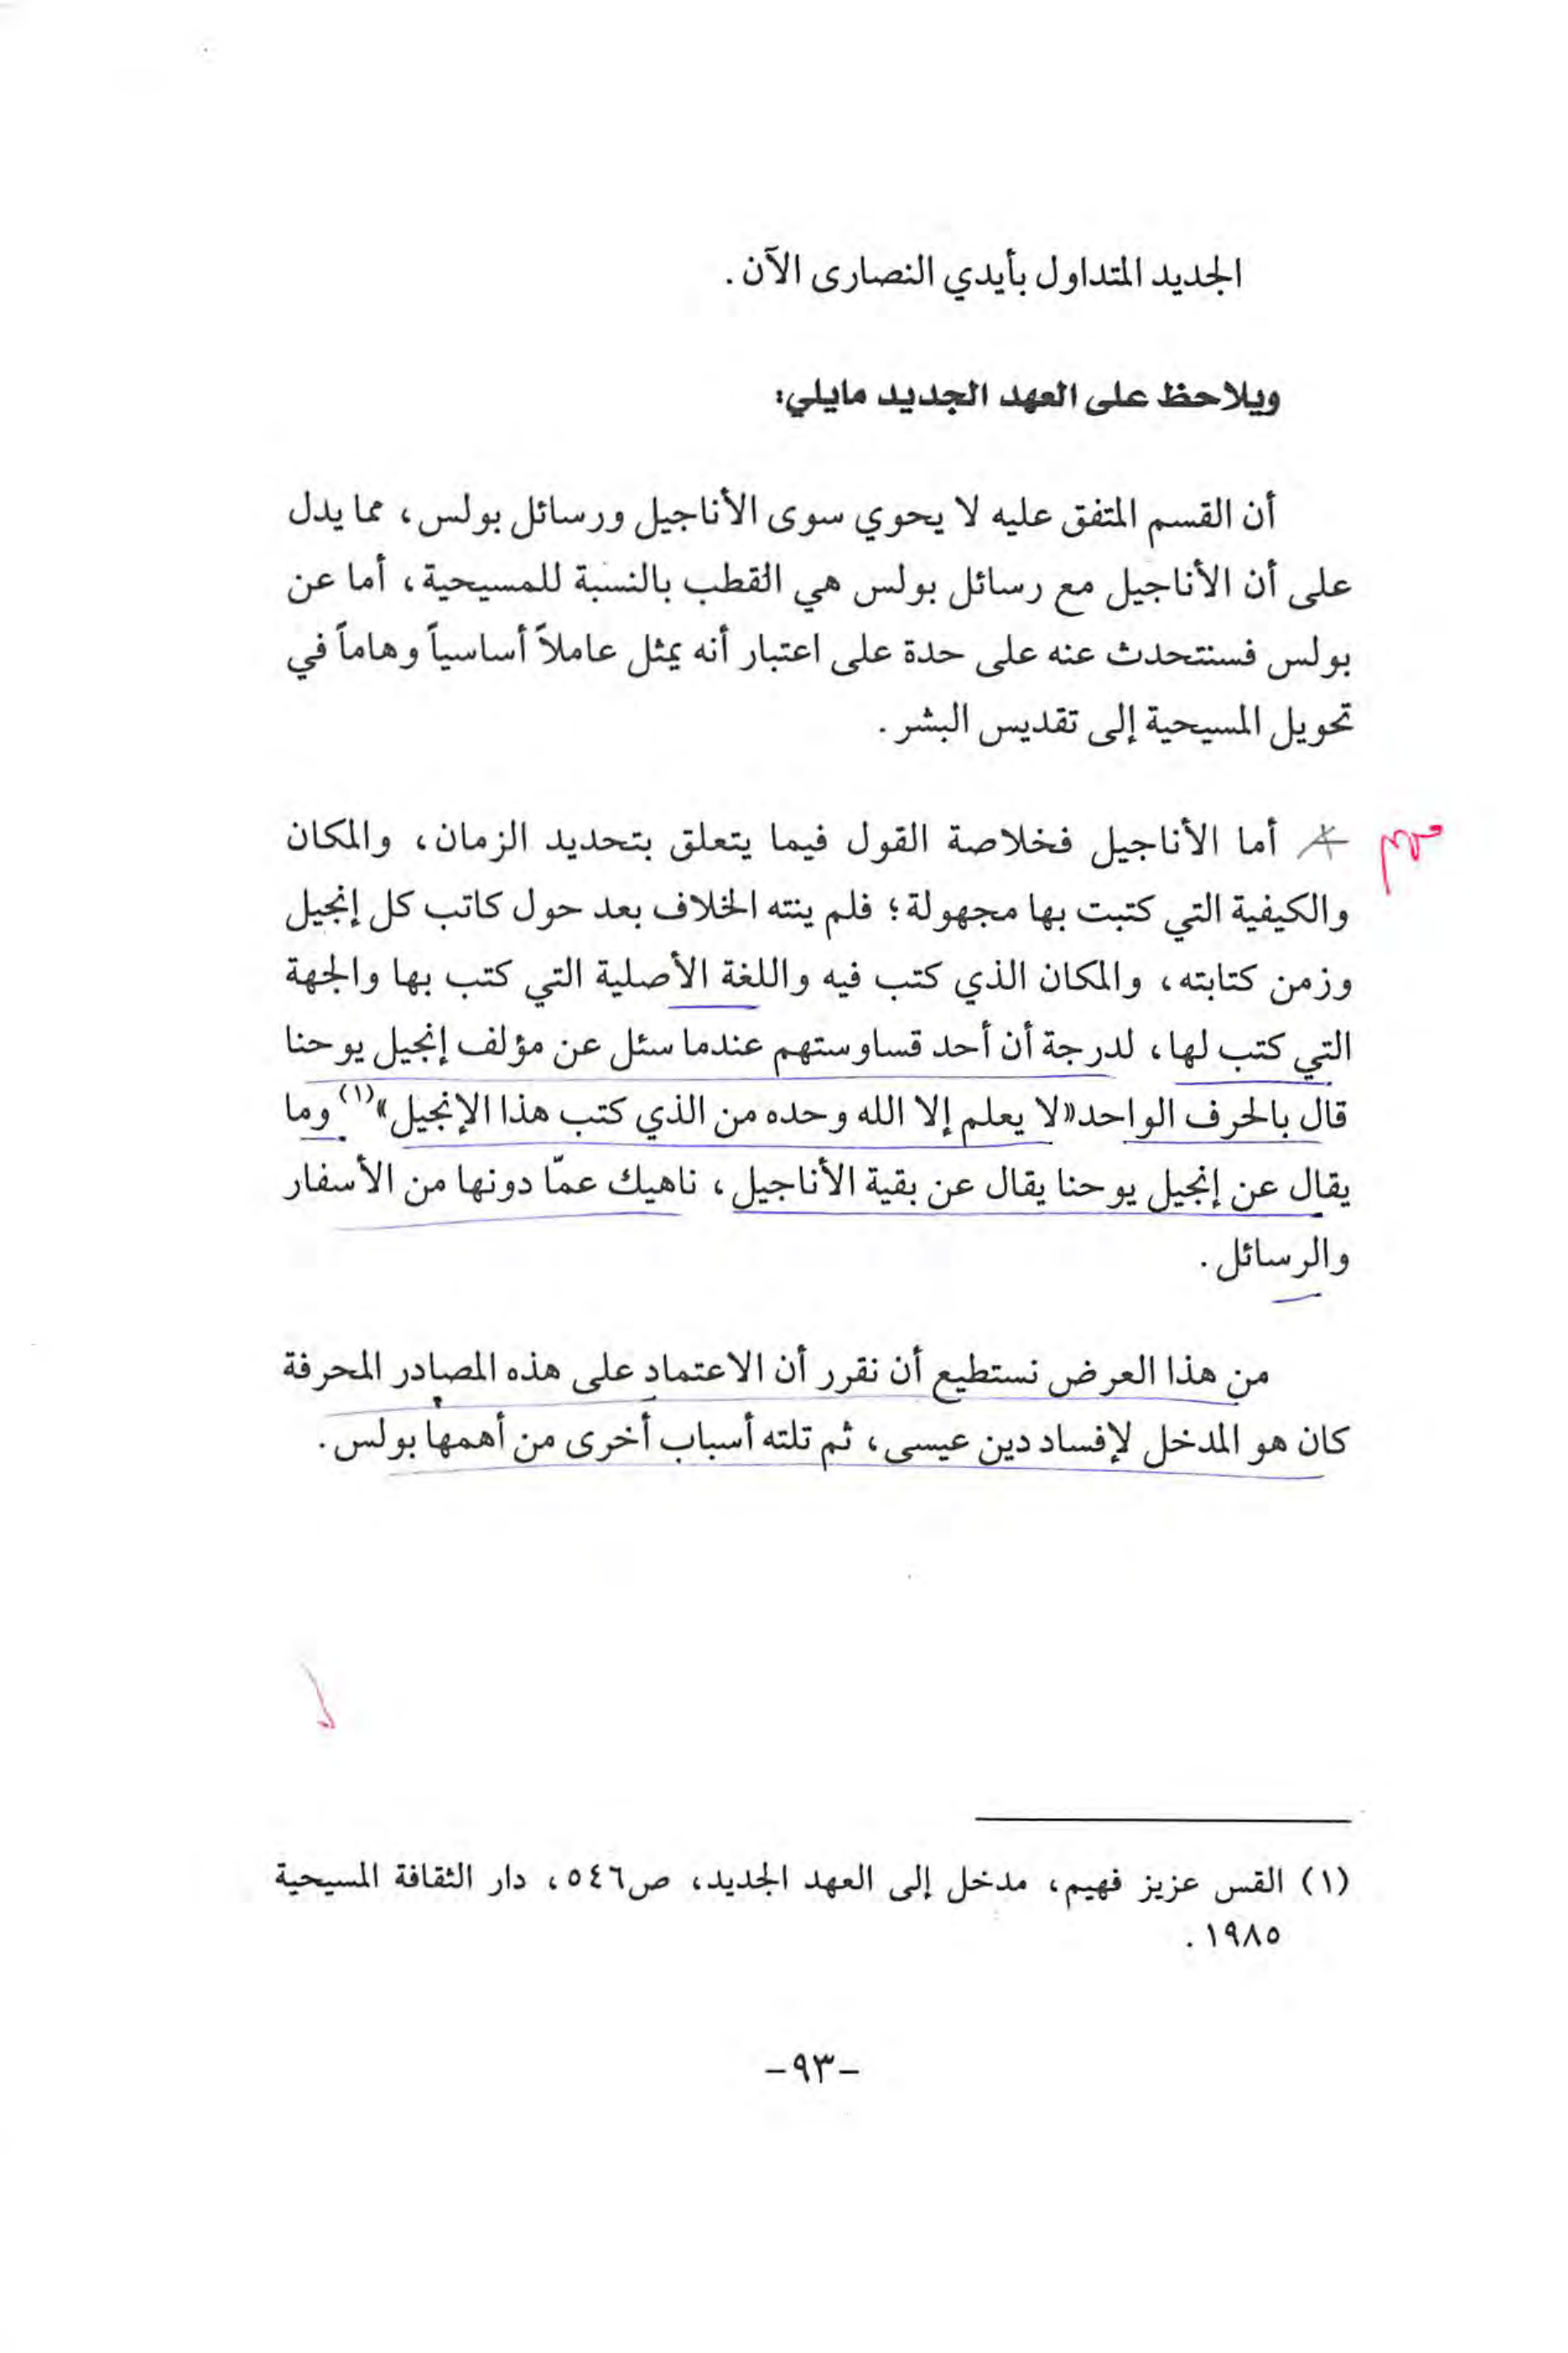 الجديد المتداول بأيدي النصارى الآن .
ويلاحظ على العهد الجديد مايلي:
أن القسم المتفق عليه لا يحوي سوى الأناجيل ورسائل بولس ، مما يدل
على أن الأناجيل مع رسائل بولس هي القطب بالنسبة للمسيحية ، أما عن
بولس فسنتحدث عنه على حدة على اعتبار أنه يمثل عاملاً أساسياً وهاماً في
تحويل المسيحية إلى تقديس البشر .
أما الأناجيل فخلاصة القول فيما يتعلق بتحديد الزمان ، والمكان
والكيفية التي كتبت بها مجهولة ؛ فلم ينته الخلاف بعد حول كاتب كل إنجيل
وزمن كتابته ، والمكان الذي كتب فيه واللغة الأصلية التي كتب بها والجهة
التي كتب لها ، لدرجة أن أحد قساوستهم عندما سئل عن مؤلف إنجيل يوحنا
قال بالحرف الواحد «لا يعلم إلا الله وحده من الذي كتب هذا الإنجيل»(١) وما
يقال عن إنجيل يوحنا يقال عن بقية الأناجيل ، ناهيك عمّا دونها من الأسفار
والرسائل .
من هذا العرض نستطيع أن نقرر أن الاعتماد على هذه المصادر المحرفة
كان هو المدخل لإفساد دين عيسى ، ثم تلته أسباب أخرى من أهمها بولس .
(١) القس عزيز فهيم ، مدخل إلى العهد الجديد ، ص٥٤٦ ، دار الثقافة المسيحية
١٩٨٥ .
-٩٣-